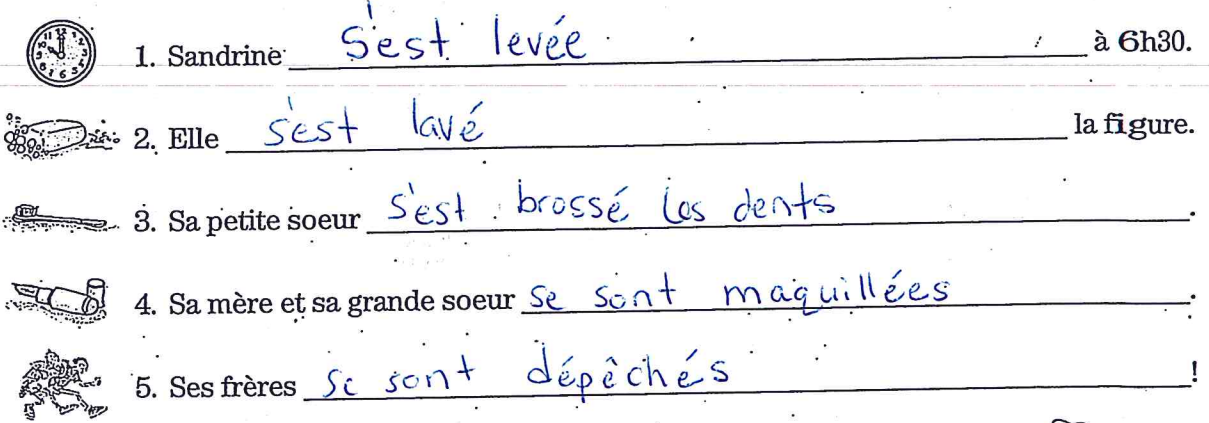 1. Sandrine s'est levée à 6h30.
2. Elle s'est lavé la figure.
3. Sa petite soeur s'est brossé les dents.
4. Sa mère et sa grande soeur se sont maquillées.
5. Ses frères se sont dépêchés!